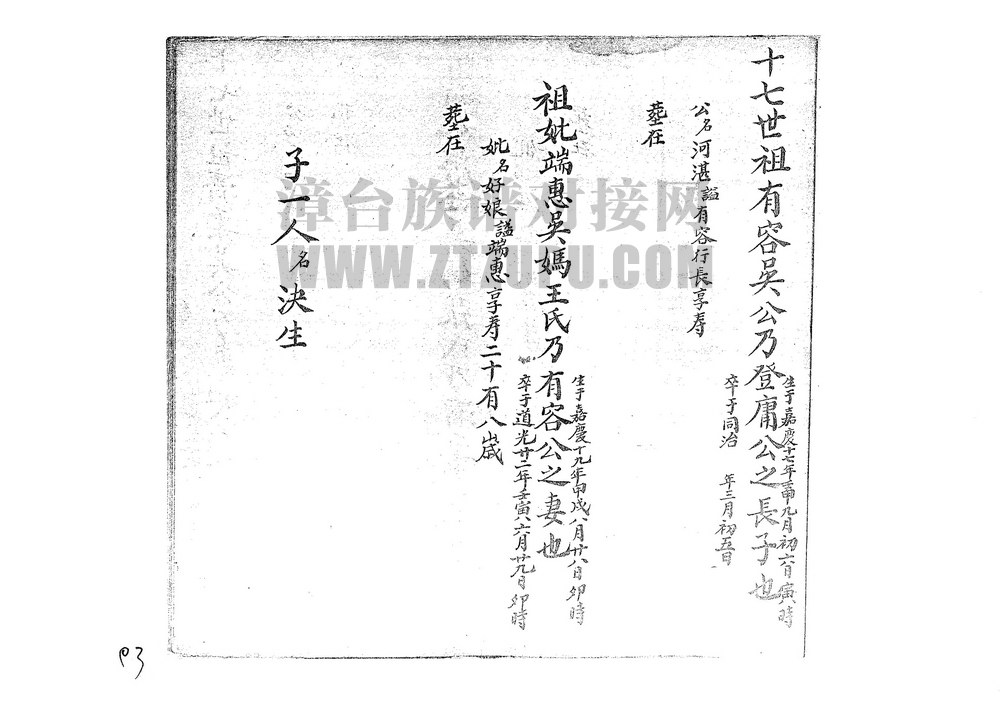 十七世祖有容吳公乃登庸公之長子也
生于嘉慶十七年壬申九月初六日寅時
卒于同治 年三月初五日
公名河湛謚有容行長享寿
塟在
祖妣端惠吳媽王氏乃有容公之妻也
生于嘉慶十九年甲戌八月廿八日卯時
卒于道光廿二年壬寅六月廿九日卯時
妣名好娘謚端惠享寿二十有八歲
塟在
子一人名決生
漳台族谱对接网
WWW.ZTZUPU.COM
93